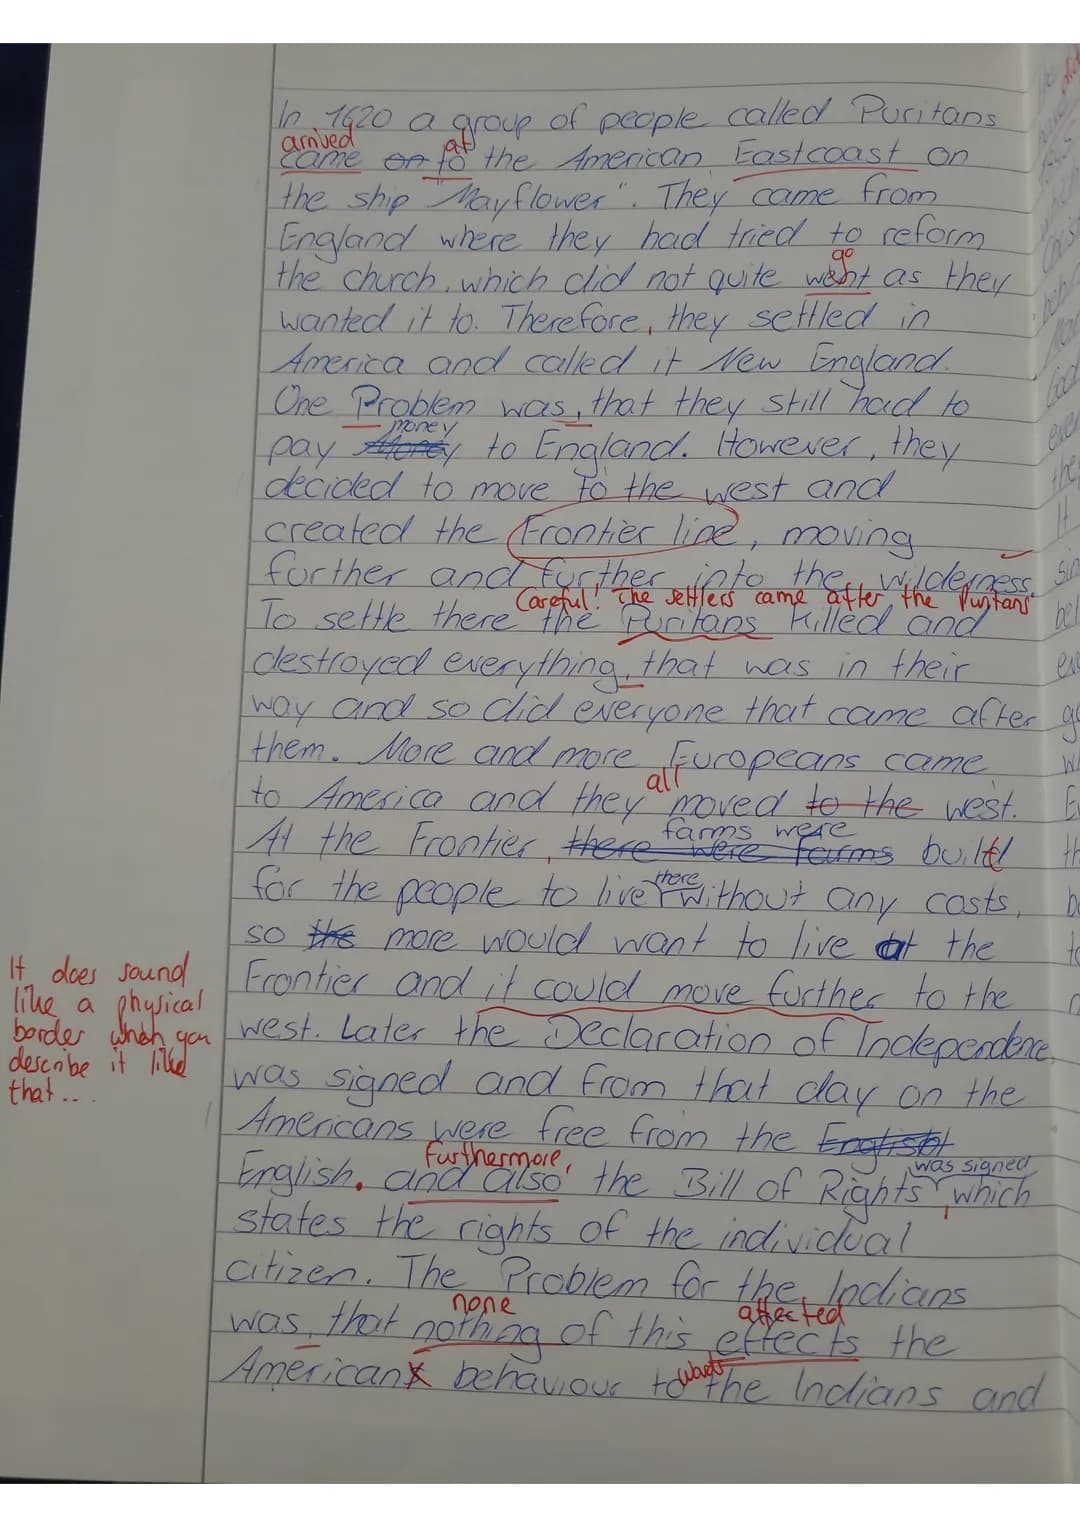 In 1620 a group of people called Puritans
arrived at
came on to the American Eastcoast on
the ship "Mayflower". They came from
England where they had tried to reform
go
the church, which did not quite went as they
wanted it to. Therefore, they settled in
America and called it New England.
One Problem was, that they still had to
money
pay Money to England. However, they
decided to move to the west and
created the Frontier line, moving
further and further into the wilderness.
Careful! The settlers came after the Puritans
To settle there the Puritans killed and
destroyed everything, that was in their
way and so did everyone that came after
them. More and more Europeans came
all
to America and they moved to the west.
farms were
At the Frontier, there were farms built
there
for the people to live without any costs,
so the more would want to live at the
Frontier and it could move further to the
west. Later the Declaration of Independence
was signed and from that day on the
Americans were free from the English
furthermore, was signed
English. and also the Bill of Rights, which
states the rights of the individual
citizen. The Problem for the Indians
none affected
was, that nothing of this effects the
wards
Americans behaviour to the Indians and
It does sound
like a physical
border when you
describe it like
that...